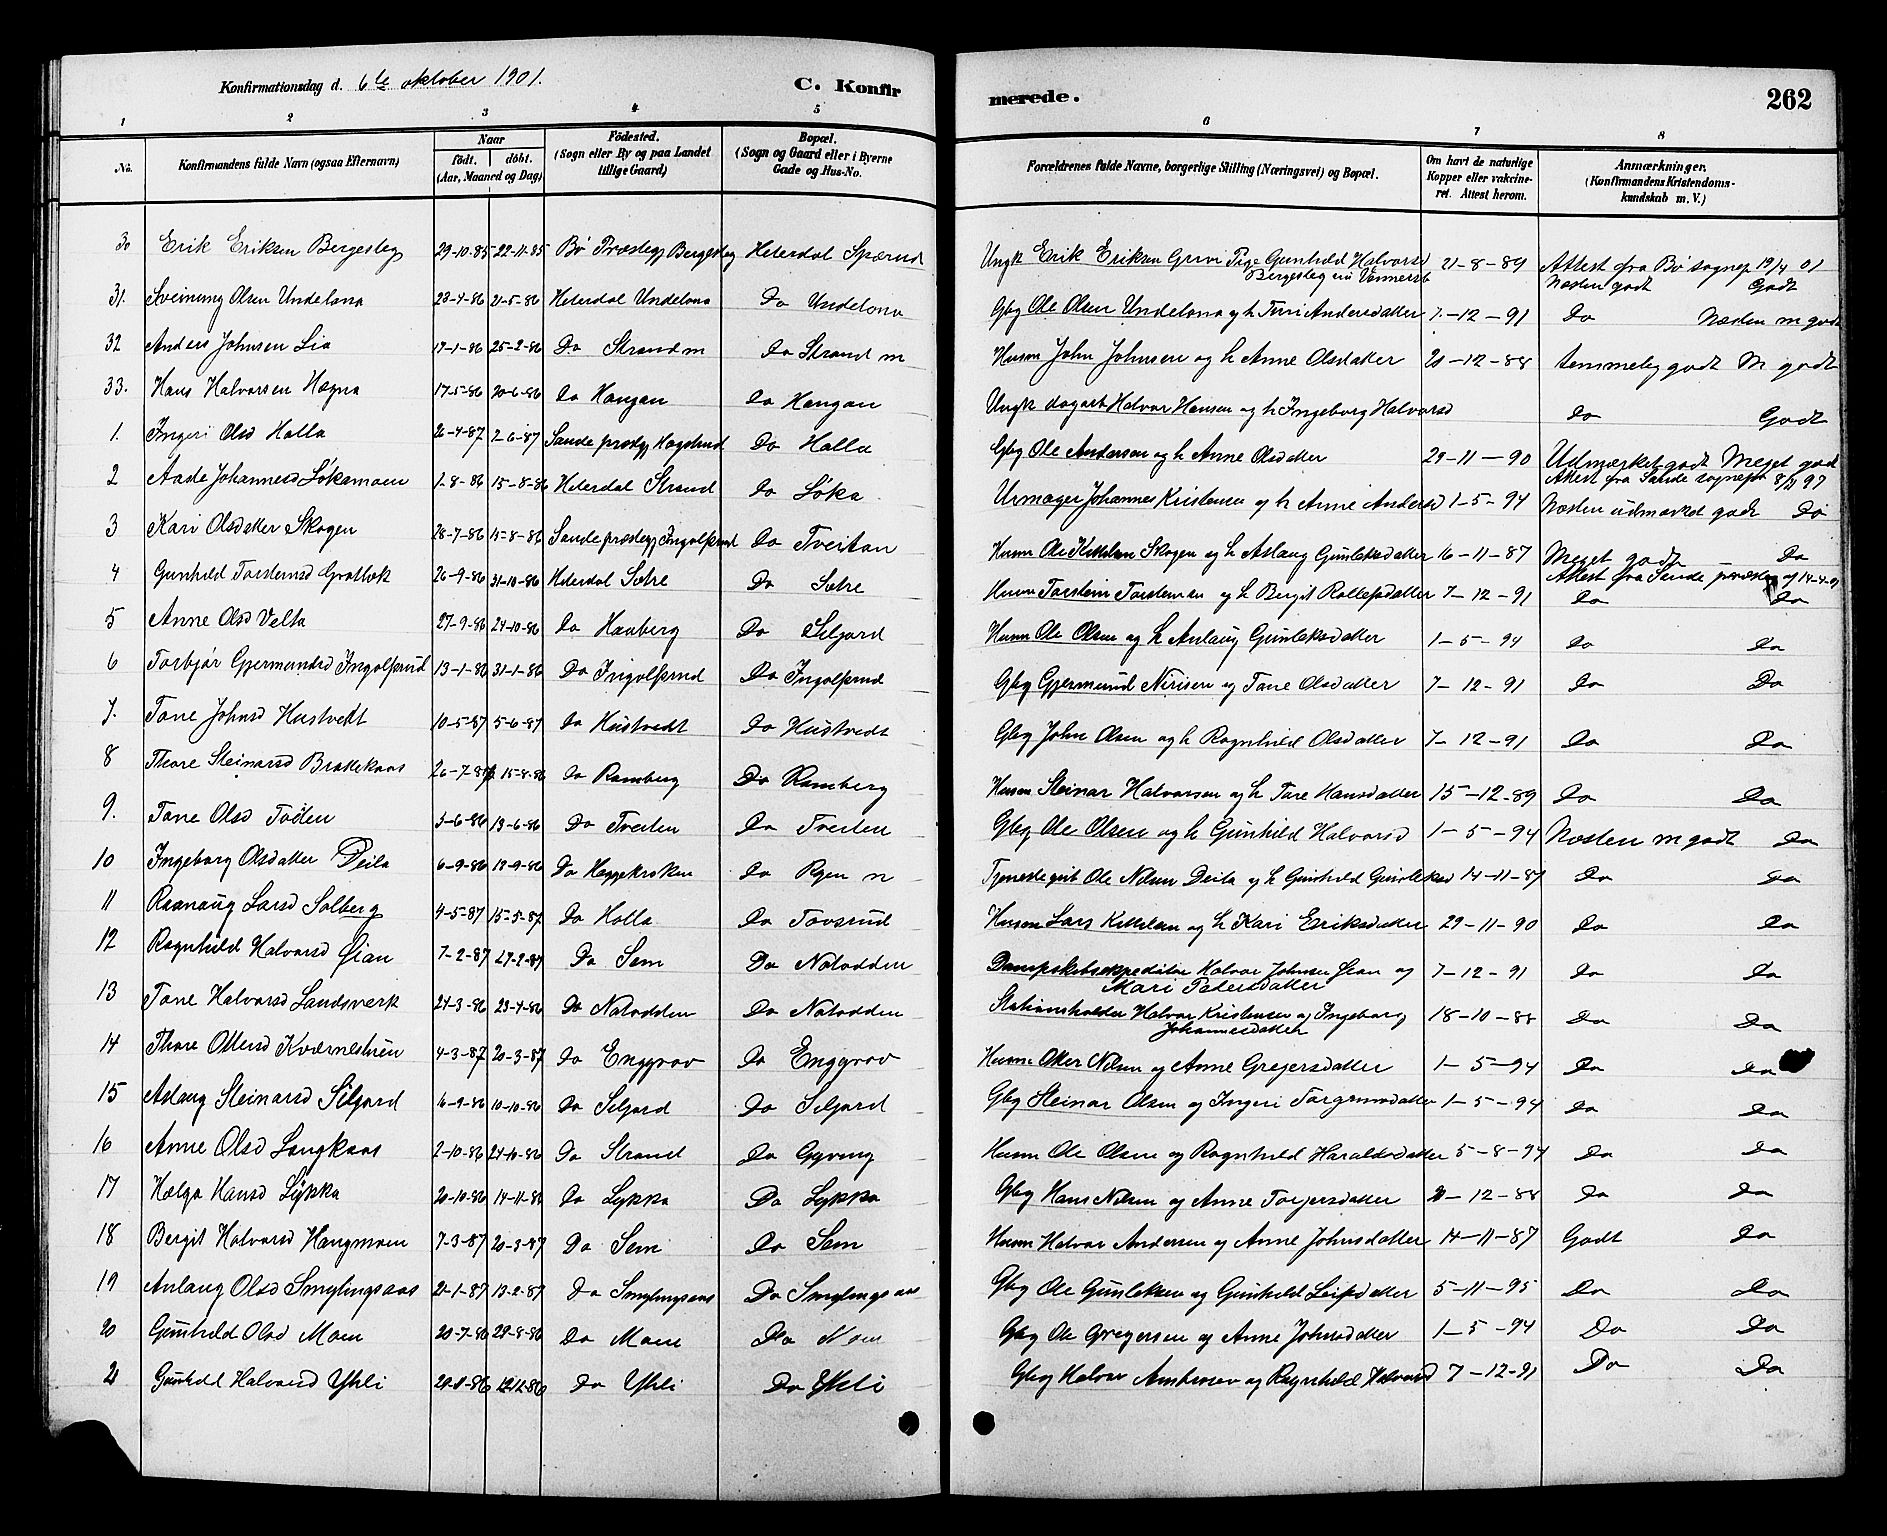 Konfirmationsdag d. 6te oktober 1901. C. Konfirmerede. 262
1 2 3 4 5 6 7 8
No. Konfirmandens fulde Navn (ogsaa Efternavn) Naar födt. döbt. (Aar, Maaned og Dag) Födested. (Sogn eller By og paa Landet tillige Gaard) Bopæl. (Sogn og Gaard eller i Byerne Gade og Hus-No. Forældrenes fulde Navne, borgerlige Stilling (Næringsvei) og Bopæl. Om havt de naturlige Kopper eller vakcineret. Attest herom. Anmærkninger. (Konfirmandens Kristendomskundskab m. V.)
30 Erik Eriksen Bergesleg 29-10-85 22-11-85 Bø Præstegj Bergesleg Heterdal Spærud Ungk Erik Eriksen Grivi Pige Gunhild Halvorsd Bergesleg 21-8-89 Attest fra Bø sognep 19/4 01 Næsten godt Godt
31. Sveinung Olsen Undelona 23-4-86 21-5-86 Heterdal Undelona Do Undelona Gbg Ole Olsen Undelona og h Turi Andersdatter 7-12-91 Do Næsten m godt
32 Anders Johnsen Lia 17-1-86 25-2-86 Do Strand m Do Strand m Husm John Johnsen og h Anne Olsdatter 20-12-88 temmelig godt M godt
33. Hans Halvorsen Høgna 17-5-86 20-6-86 Do Haugan Do Haugan Ungk dagarb Halvor Hansen og h Ingeborg Halvorsd Do Godt
1. Ingeri Olsd Holla 26-4-87 2-6-87 Sande prestegj Hagelund Do Holla Gbg Ole Andersen og h Anne Olsdatter 29-11-90 Udmærket godt Meget godt Attest fra Sande sognepr 8/11 97
2 Aade Johannesd Løkamoen 1-8-86 15-8-86 Heterdal Strand Do Løka Urmager Johannes Kristensen og h Anne Andersd 1-5-94 Næsten udmærket godt Do
3 Kari Olsdatter Skogen 28-7-86 15-8-86 Sande prestegj Ingolfsrud Do Tveitan Husm Ole Kittelsen Skogen og h Aslaug Gunleksdatter 16-11-87 Meget godt Do Attest fra Sande præsteg af 14-4-01
4 Gunhild Torsteinsd Grotbæk 26-9-86 31-10-86 Heterdal Sætre Do Sætre Husm Torstein Torsteinsen og h Bergit Rollefsdatter 7-12-91 Do Do
5 Anne Olsd Velta 27-9-86 24-10-86 Do Hauberg Do Seljord Husm Ole Olsen og h Anlaug Gunleksdatter 1-5-94 Do Do
6 Torbjør Gjermundsd Ingolfsrud 13-1-86 31-1-86 Do Ingolfsrud Do Ingolfsrud Gbg Gjermund Nirisen og Tone Olsdatter 7-12-91 Do Do
7. Tone Johnsd Hustvedt 10-5-87 5-6-87 Do Hustvedt Do Hustvedt Gbg John Olsen og h Ragnhild Olsdatter 7-12-91 Do Do
8 Thore Steinarsd Brakkekaas 26-7-86 15-8-86 Do Ramberg Do Ramberg Husm Steinar Halvorsen og h Tore Hansdatter 15-12-89 Do Do
9. Tone Olsd Tøden 5-6-86 13-6-86 Do Tveiten Do Tveiten Gbg Ole Olsen og h Gunhild Halvorsd 1-5-94 Næsten m godt Do
10 Ingeborg Olsdatter Deila 6-9-86 19-9-86 Do Heggekroken Do Ryen n Tjenestegut Ole Nilsen Deila og h Gunhild Gunleksd 14-11-87 Do Do
11 Raanaug Larsd Solberg 4-5-87 15-5-87 Do Holla Do Tovsrud Husm Lars Kittelsen og h Kari Eriksdatter 29-11-90 Do Do
12 Ragnhild Halvorsd Øian 7-2-87 27-2-87 Do Sem Do Notodden Dampskibsexpeditør Halvor Johnsen Øian og Mari Petersdatter 7-12-91 Do Do
13 Tone Halvorsd Landsverk 24-3-86 23-4-86 Do Notodden Do Notodden Stationsholder Halvor Kristensen og Ingeborg Johannesdatter 18-10-88 Do Do
14 Thore Ottersd Kvernestuen 4-3-87 20-3-87 Do Enggrav Do Enggrav Husm Otter Nilsen og Anne Gregersdatter 1-5-94 Do Do
15 Aslaug Steinarsd Seljord 16-9-86 10-10-86 Do Seljord Do Seljord Gbg Steinar Olsen og Ingeri Torgrimsdatter 1-5-94 Do Do
16 Anne Olsd Langkaas 2-10-86 24-10-86 Do Strand Do Gyving Husm Ole Olsen og Ragnhild Haraldsdatter 5-8-94 Do Do
17 Helga Hansd Lykka 20-10-86 14-11-86 Do Lykka Do Lykka Gbg Hans Nilsen og Anne Torjersdatter 20-12-88 Do Do
18 Bergit Halvorsd Haugmoen 7-3-87 20-3-87 Do Sem Do Sem Husm Halvor Andersen og Anne Johnsdatter 14-11-87 Godt Do
19 Anlaug Olsd Smylingsaas 21-1-87 13-2-87 Do Smylingsaas Do Smylingsaas Gbg Ole Gunleksen og Gunhild Leifsdatter 5-11-95 Do Do
20 Gunhild Olsd Moen 20-7-86 29-8-86 Do Moen Do Moen Gbg Ole Gregersen og Anne Johnsdatter 1-5-94 Do Do
21 Gunhild Halvorsd Ytrli Do Ytrli Do Ytrli Gbg Halvor Andersen og Ragnhild Halvorsd 7-12-91 Do Do